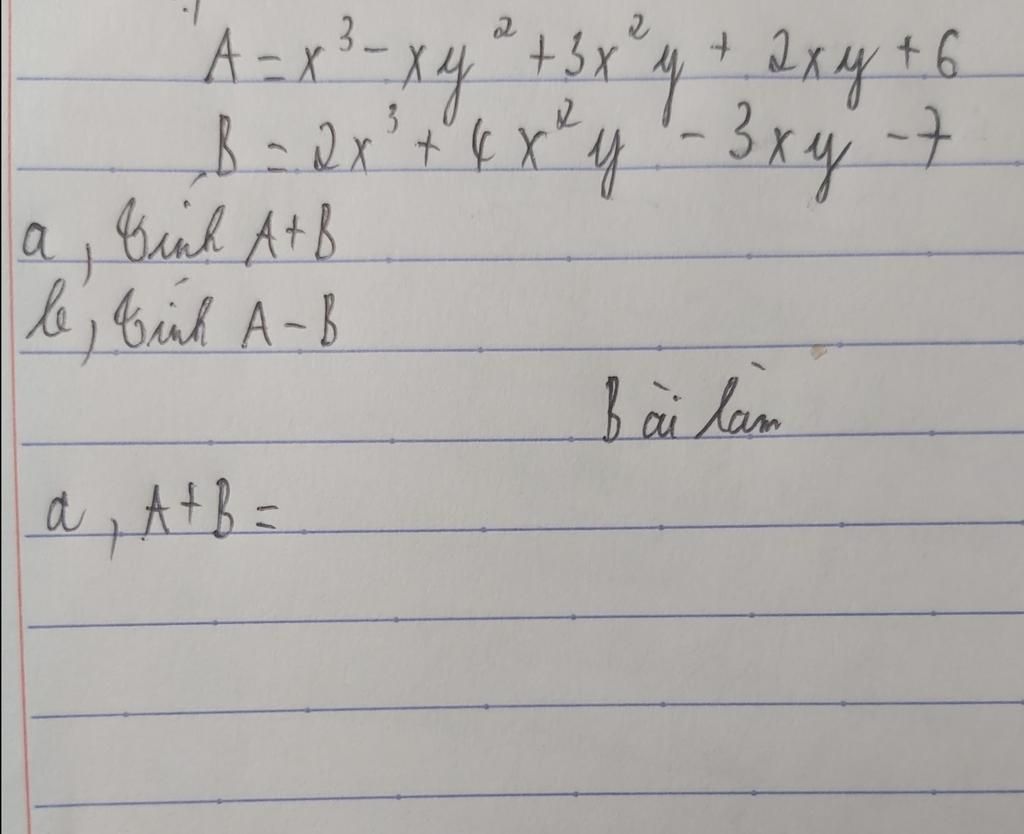 A = x³ - xy² + 3x²y + 2xy + 6
B = 2x³ + 4x²y - 3xy - 7
a, tính A+B
b, tính A-B
Bài làm
a, A+B =